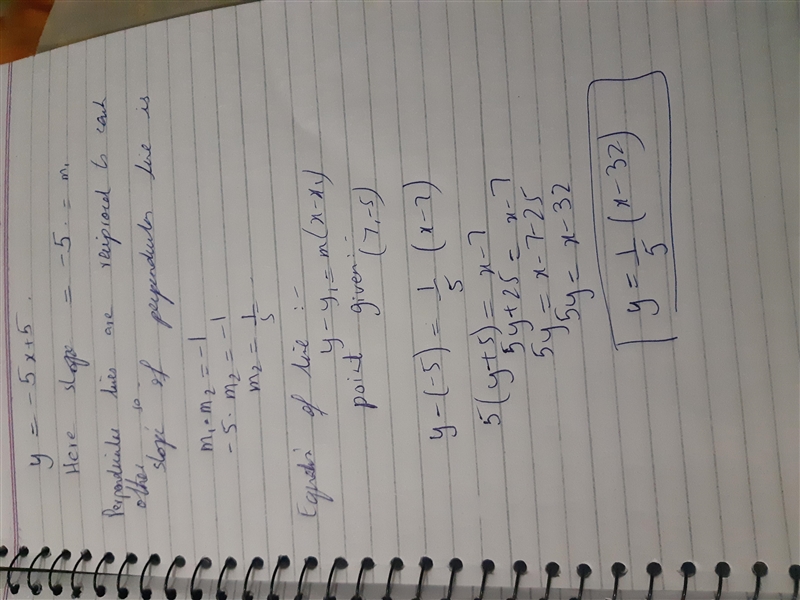 y = -5x+5.
Here slope = -5. = m₁
Perpendicular lines are reciprocal to each
other so
slope of perpendicular line is
m₁·m₂ = -1
-5·m₂ = -1
m₂ = 1/5
Equation of line :-
y-y₁ = m(x-x₁)
point given:-
(7,-5)
y-(-5) = 1/5 (x-7)
5(y+5) = x-7
5y+25 = x-7
5y = x-7-25
5y = x-32
y = 1/5 (x-32)